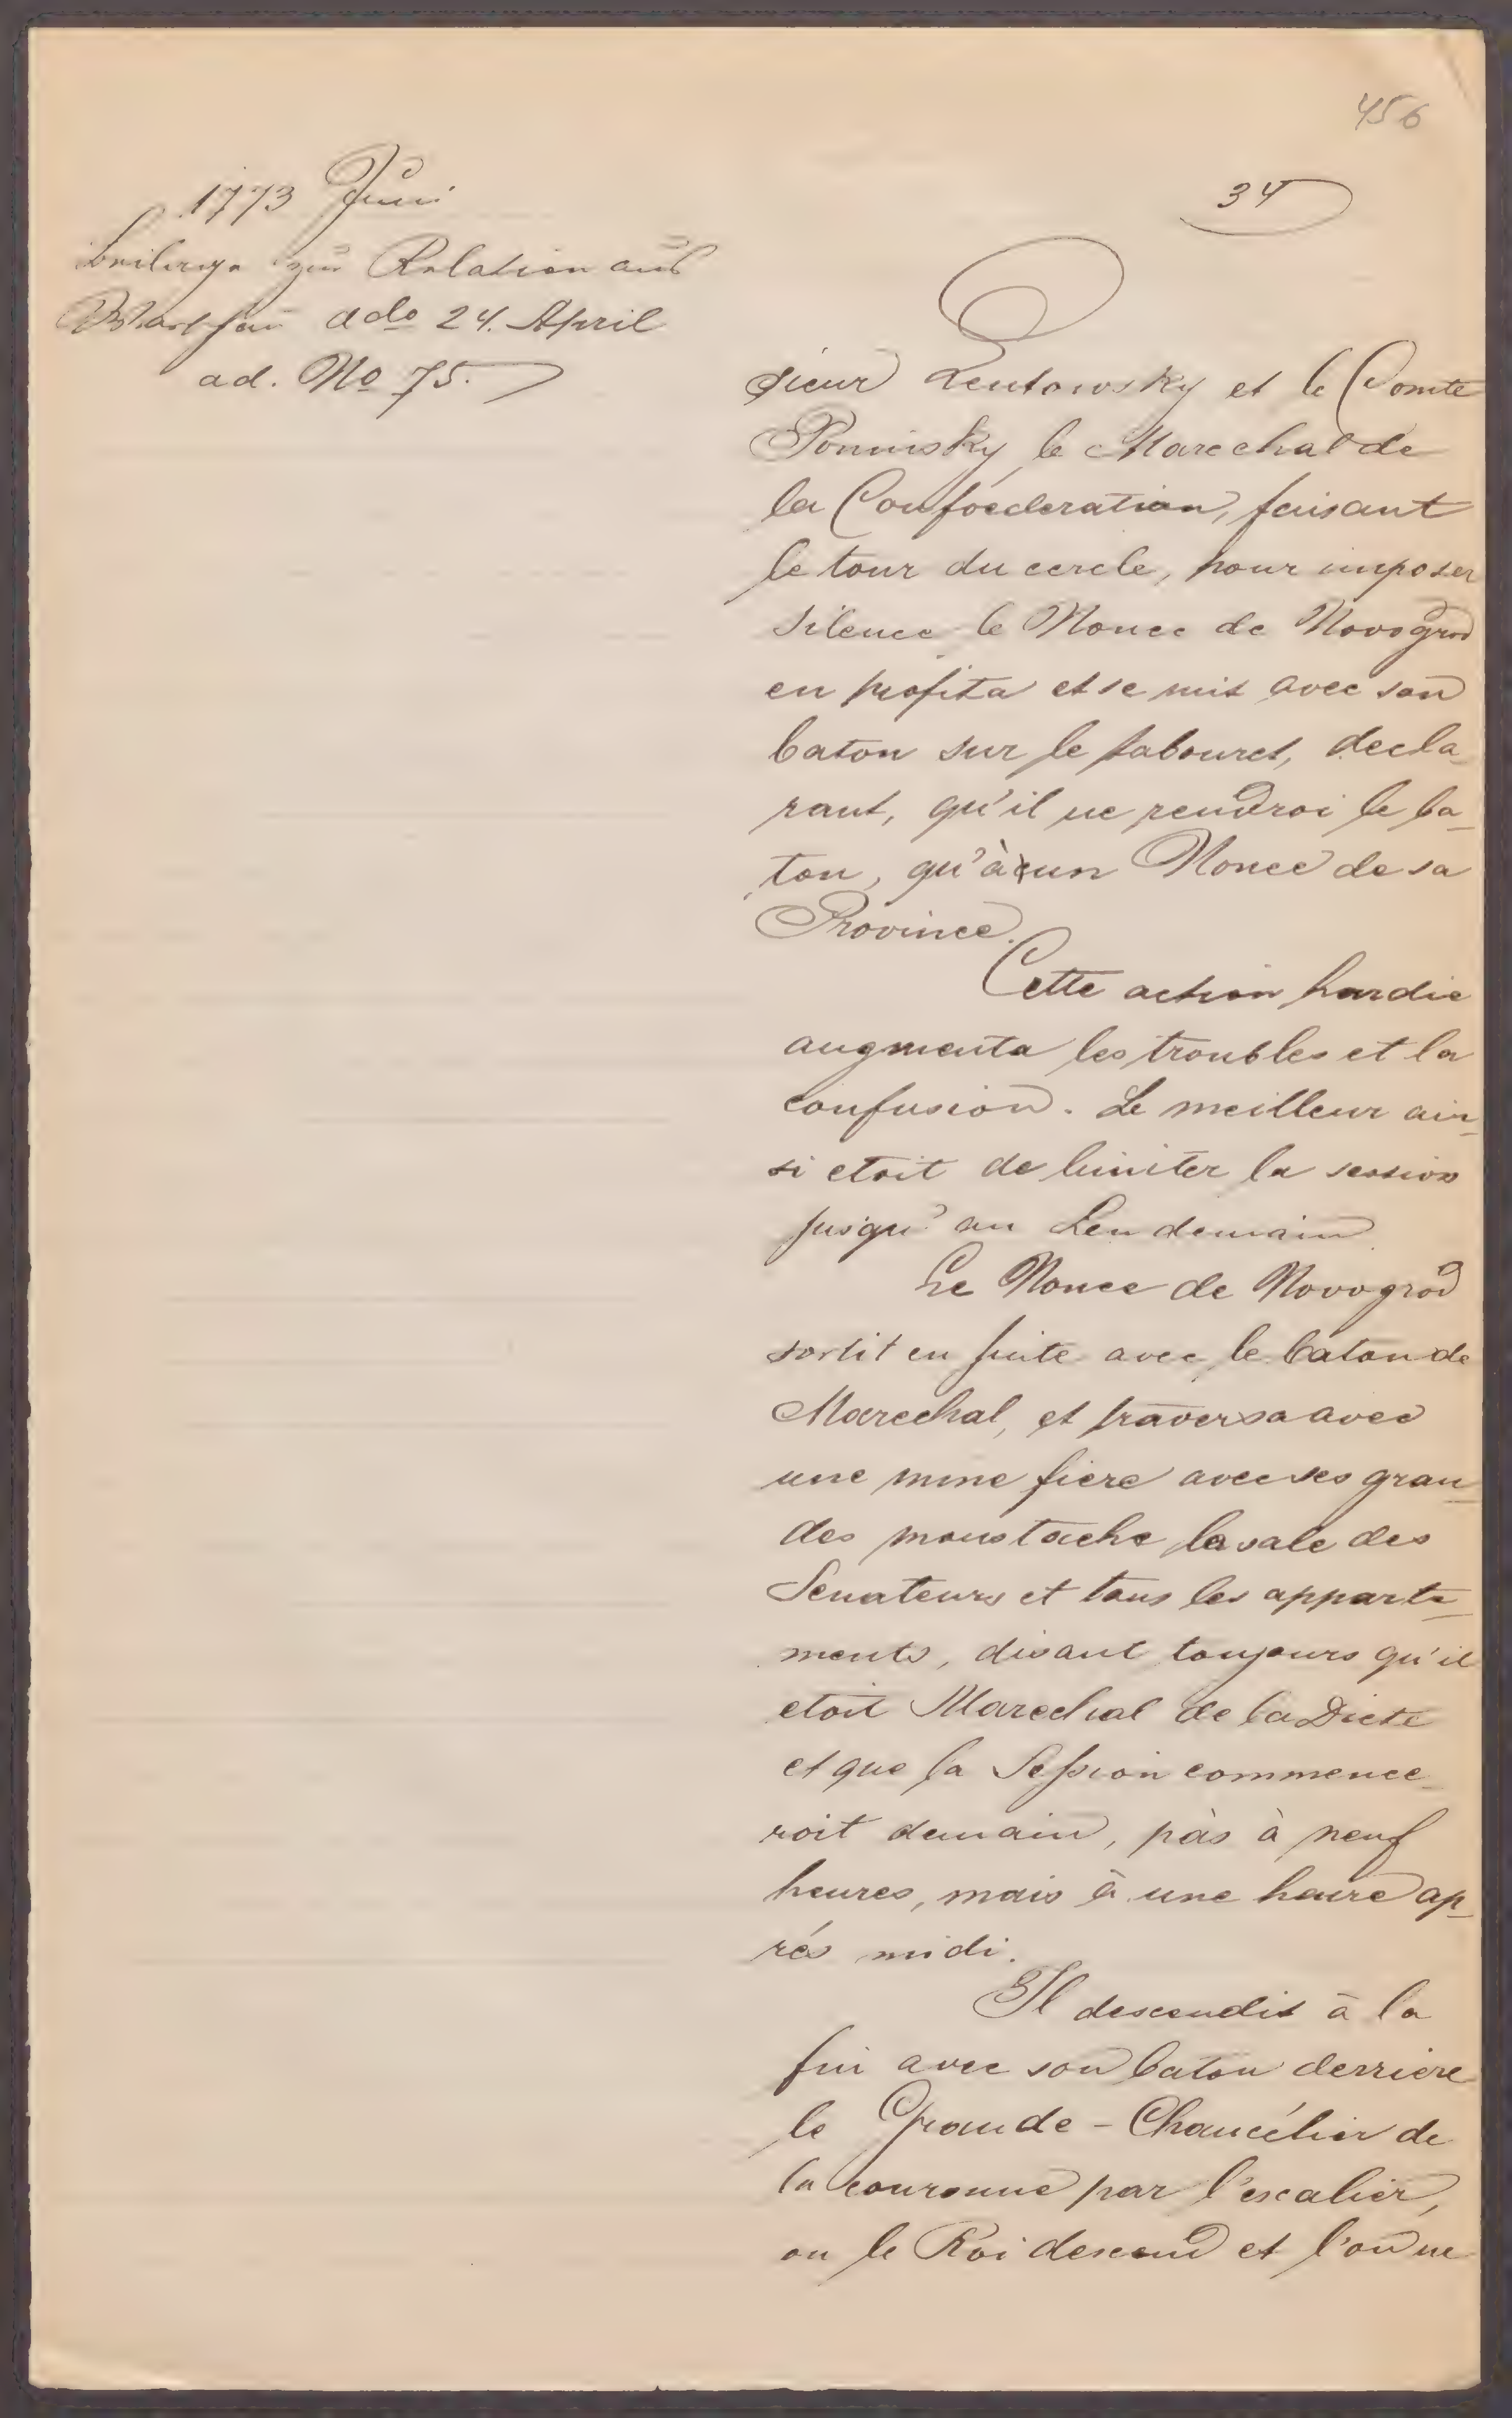 456
34
1773 Juni
Beilage zur Relation aus
Warschau ddo 24. April
ad. No 75.
sieur Lentowsky et le Comte
Poninsky le Marechal de
la Confoederation, faisant
le tour du cercle, pour imposer
silence le Nonce de Novogrod
en profita et se mit avec son
baton sur le tabouret, decla-
rant, qu'il ne rendroi le ba-
ton, qu'à un Nonce de sa
Province.
Cette action hardie
augmenta les troubles et la
confusion. Le meilleur ain-
si etoit de limiter la session
jusqu'au Lendemain
Le Nonce de Novogrod
sortit en suite avec le baton de
Marechal, et traversa avec
une mine fiere avec ses gran-
des moustache la sale des
Senateurs et tous les apparte-
ments, disant toujours qu'il
etoit Marechal de la Diete
et que la Session commence-
roit demain, pàs à neuf
heures, mais à une heure ap-
rés midi.
Il descendit à la
fin avec son baton derriere
le Grande-Chancélier de
la couronne par l'escalier,
ou le Roi descend et l'on ne